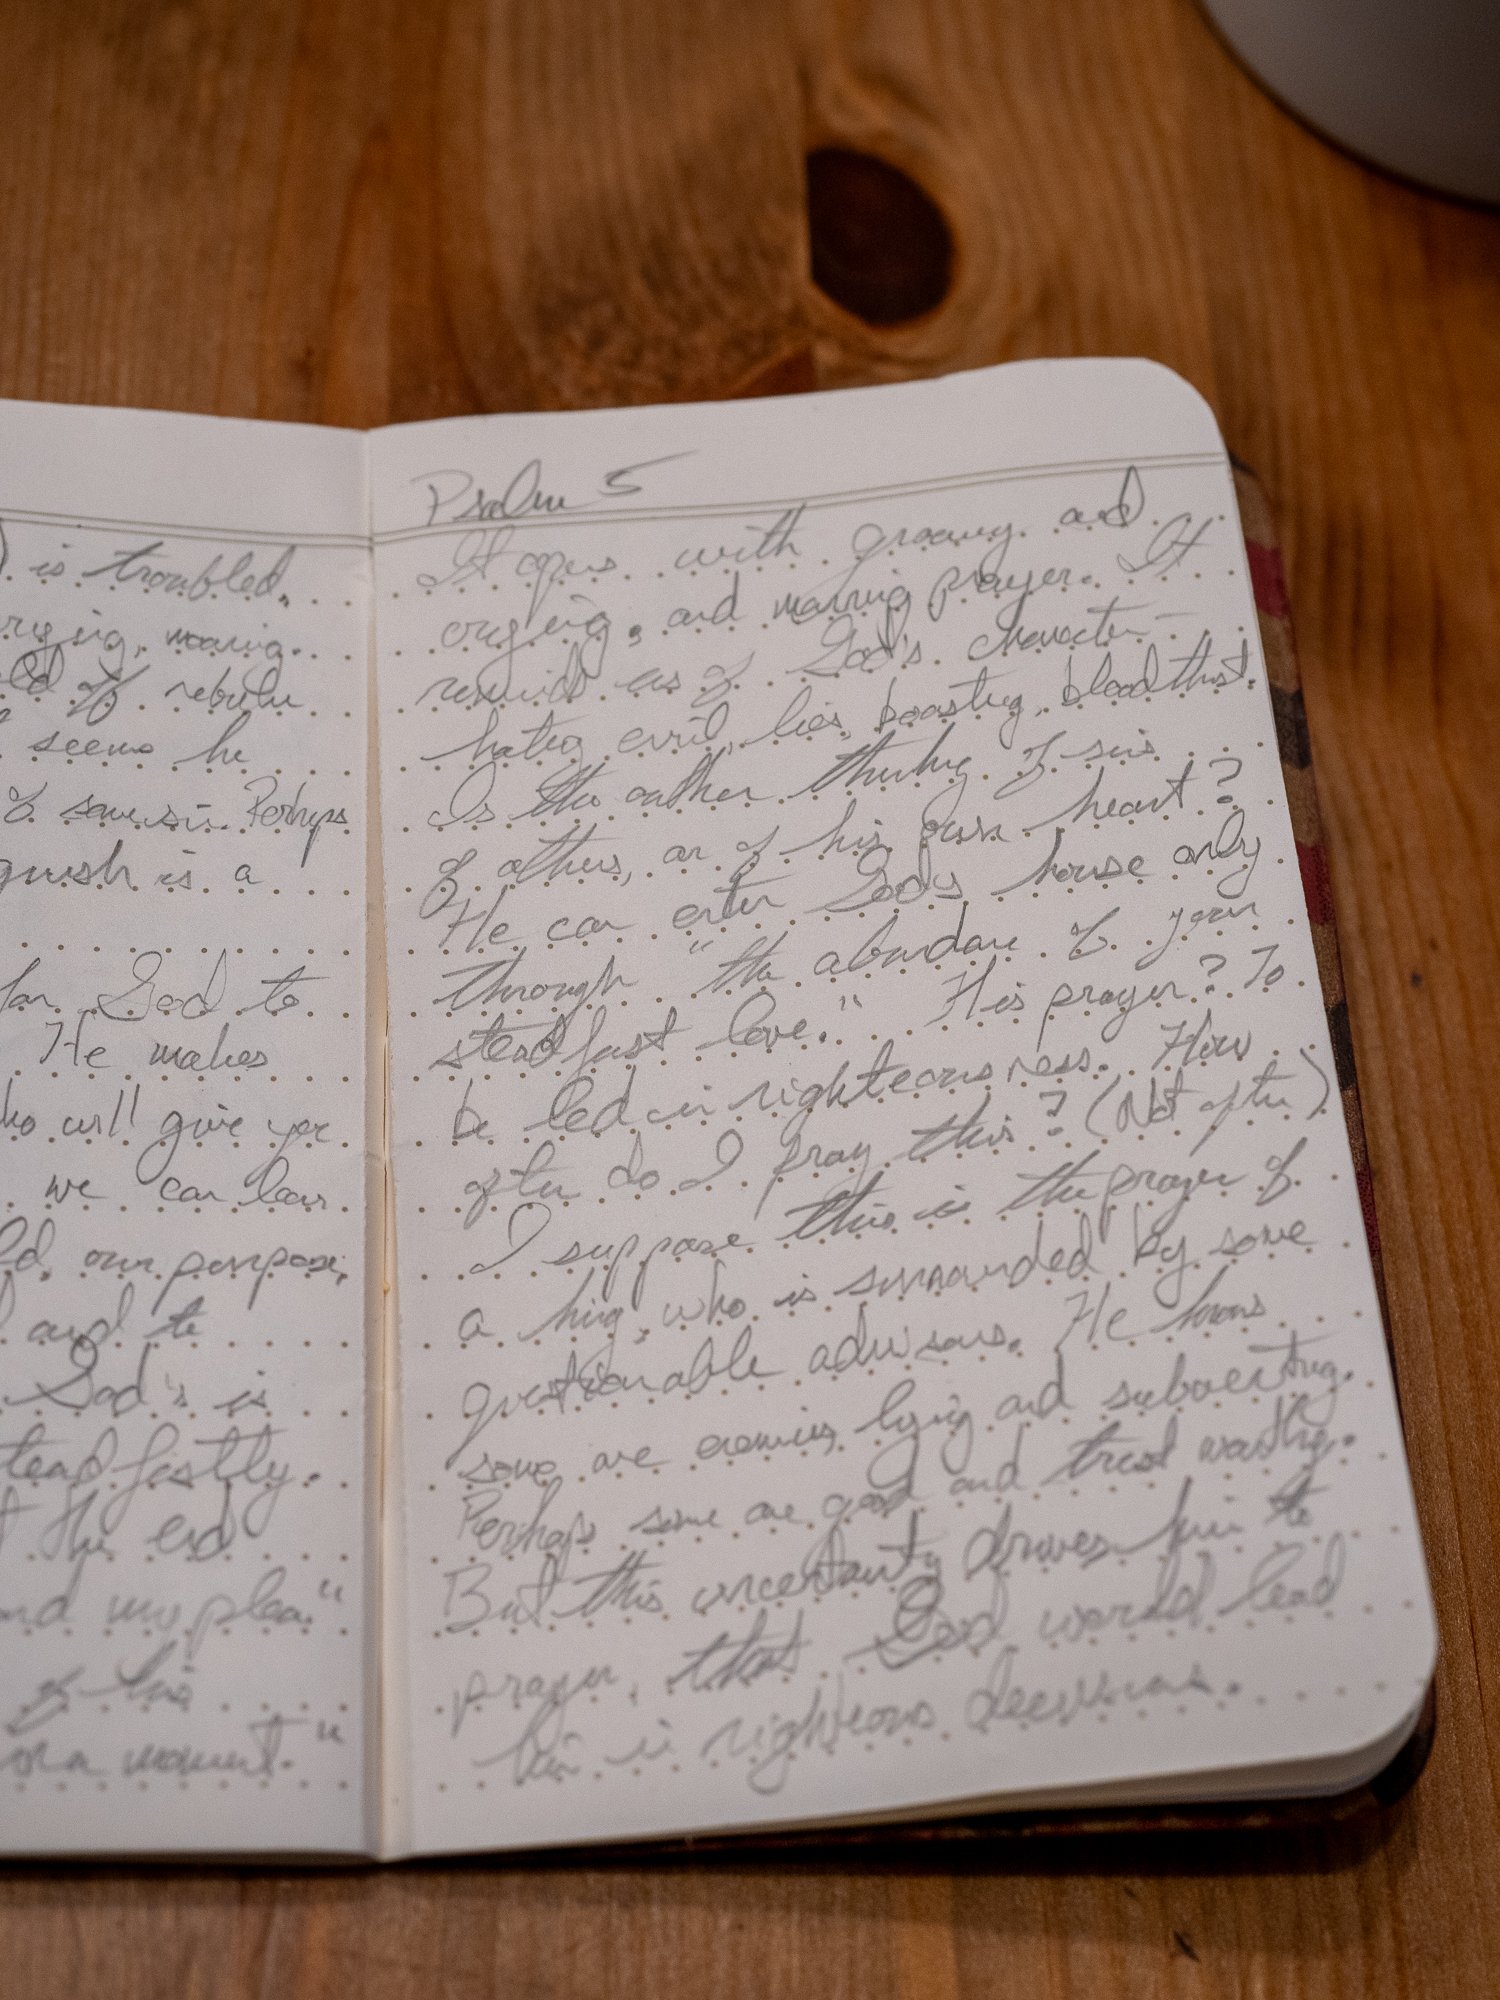 is troubled,
moaning.
of rebuke
seems he
of some sin. Perhaps
is a
for God to
He makes
who will give you
we can learn
our purpose,
and to
God's is
steadfastly.
the end
my plea."
of his
for a moment."
Psalm 5
It opens with groaning and
crying, and morning prayer. It
reminds us of God's character—
hating evil, lies, boasting, bloodthirst.
Is the author thinking of sins
of others, or of his own heart?
He can enter God's house only
through "the abundance of your
steadfast love." His prayer? To
be led in righteousness. How
often do I pray this? (Not often)
I suppose this is the prayer of
a king, who is surrounded by some
questionable advisors. He knows
some are enemies, lying and subverting.
Perhaps some are good and trustworthy.
But this uncertainty drives him to
prayer, that God would lead
him in righteous decisions.